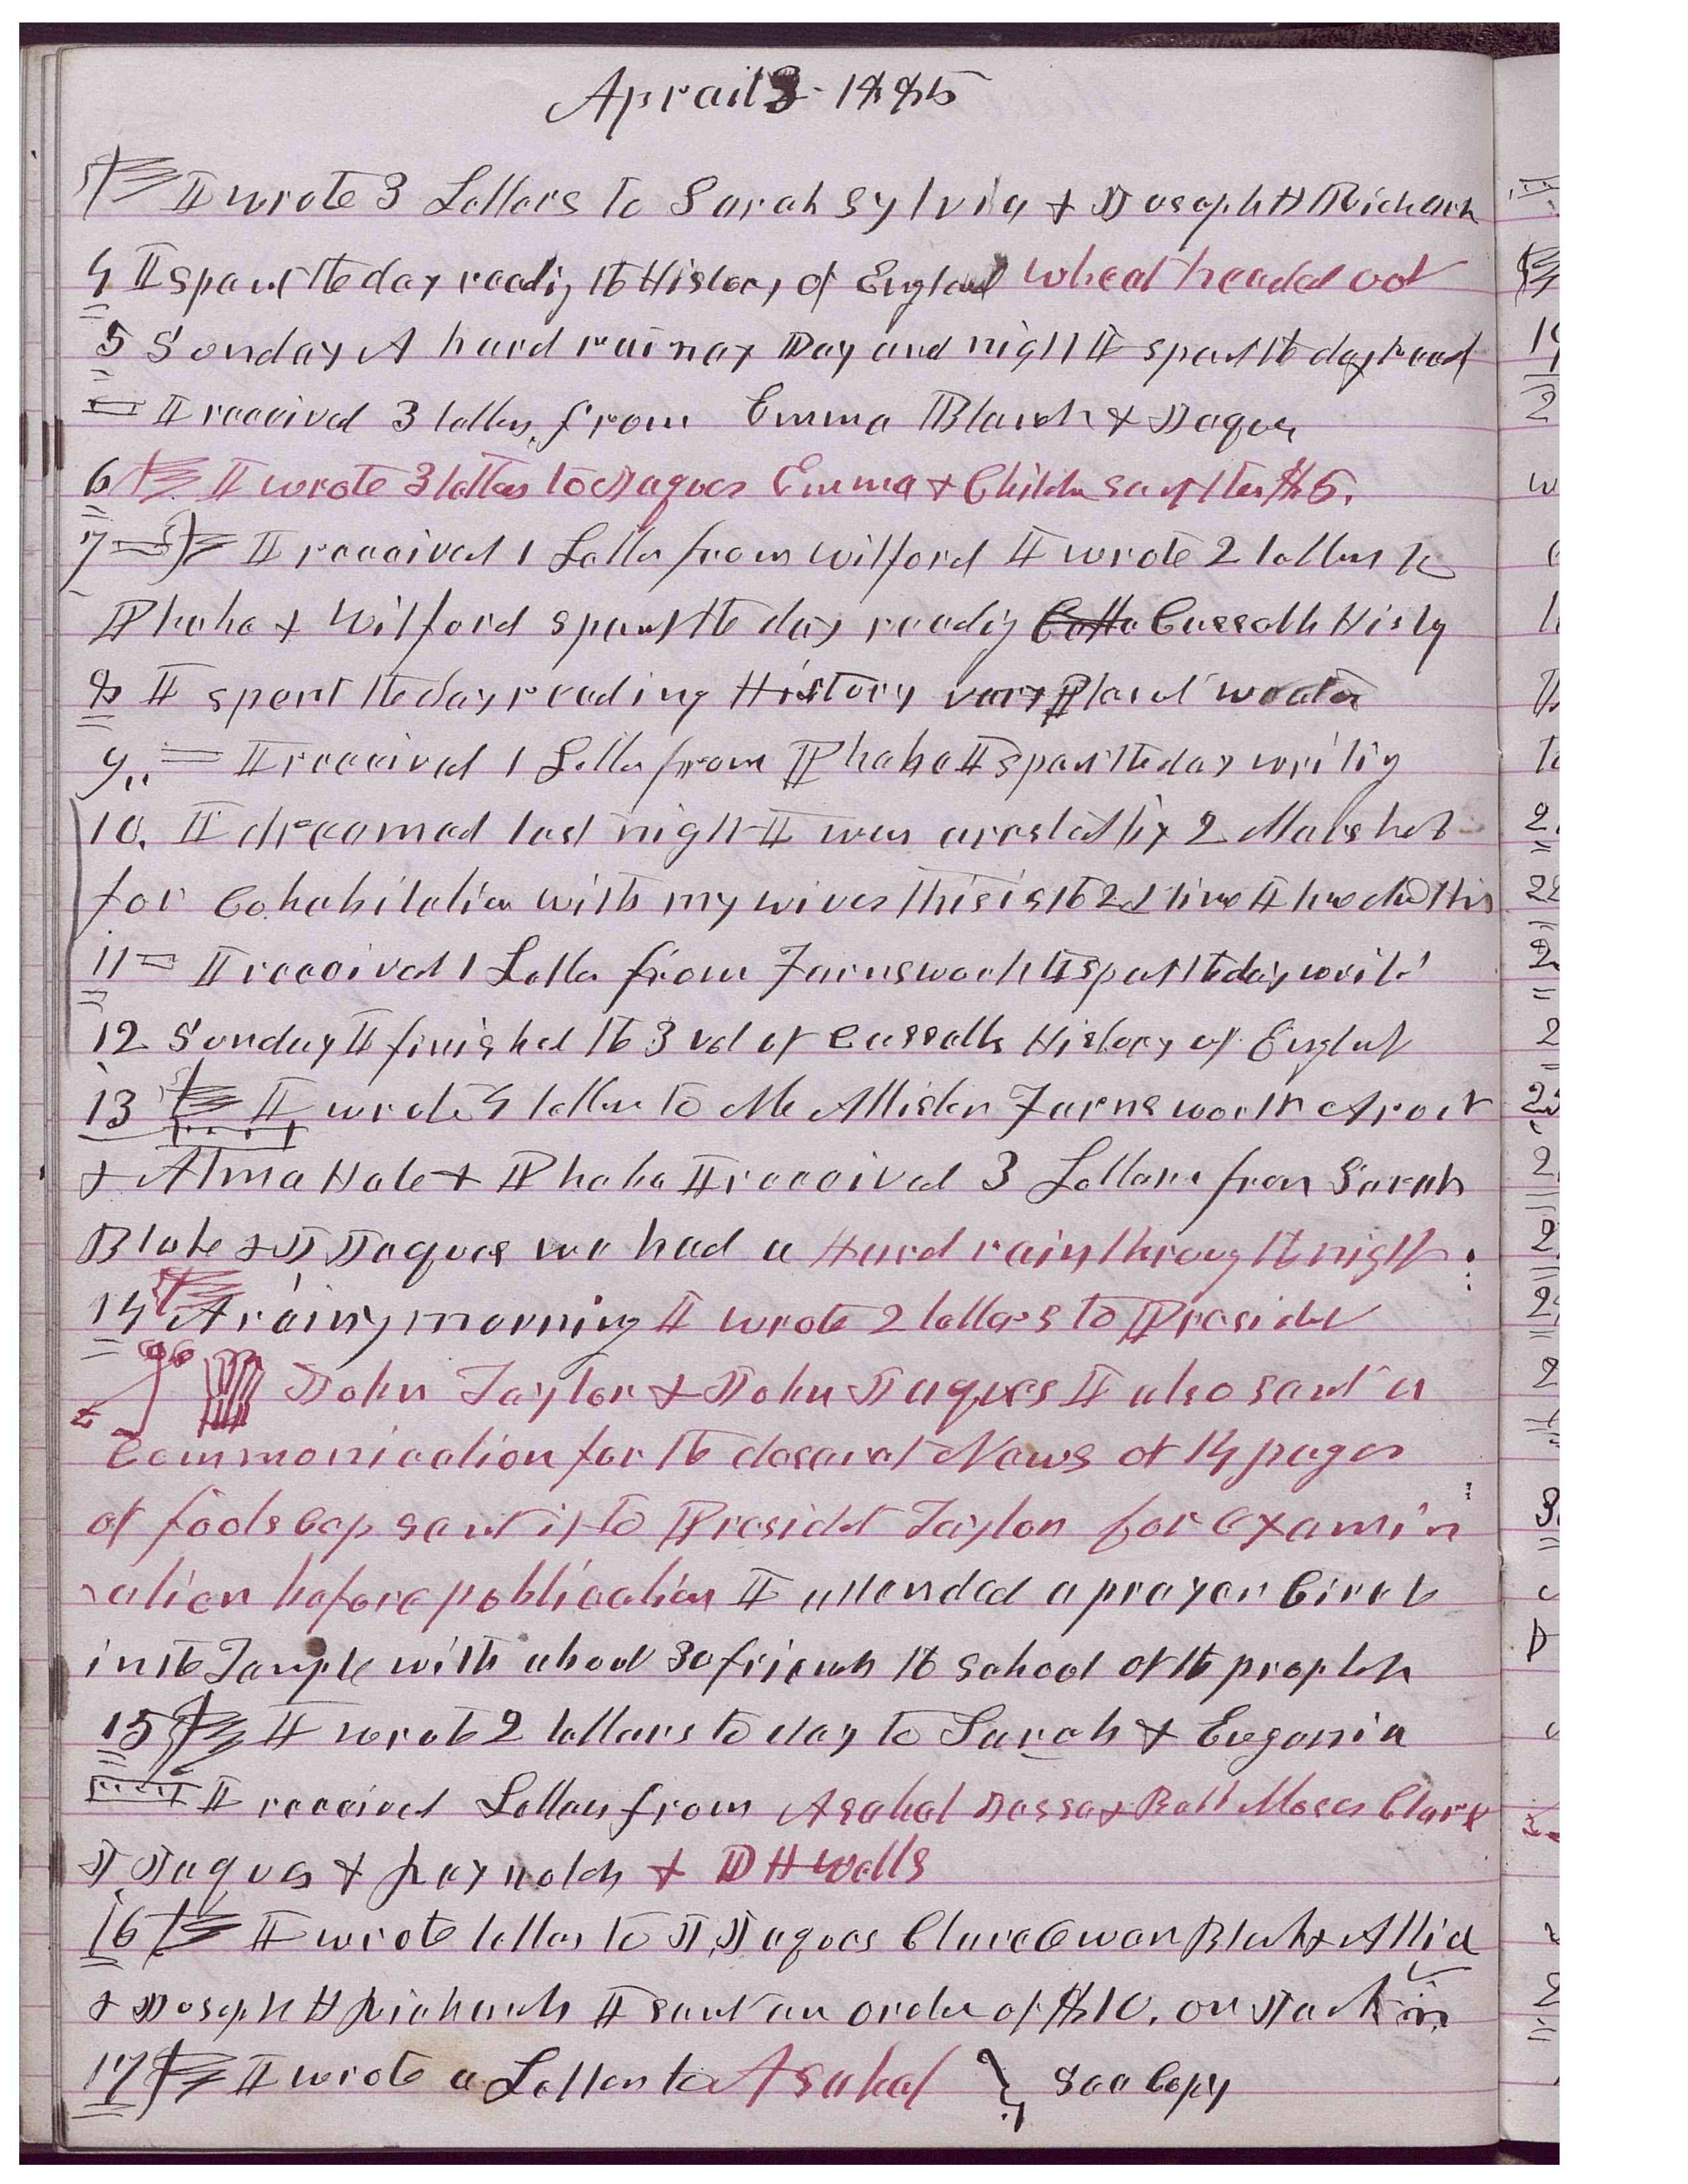 Aprail 3 1885
I wrote 3 Letters to Sarah Sylvia & Joseph H Richards
4 I spent the day reading the History of England wheat headed out
5 Sunday A hard rainay Day and night I spent the day read
I received 3 letters from Emma Blanch & Jaques
6 I wrote 3 letters to Jaques Emma & Children sent them $5.
7 I received 1 Letter from Wilford I wrote 2 letters to
Phebe & Wilford spent the day reading Cassells Histy
8 I spent the day reading History vary Plasant weather
9 I received 1 Letter from Phebe I spent the day writing
10. I dreamed last night I was arested by 2 Marshals
for Cohabitation with my wives this is the 2d time I have dr this
11 I received 1 Letter from Farnsworth I spent the day writ
12 Sunday I finished the 3 vol of Cassells History of England
13 I wrote 4 letters to McAllister Farnsworth
& Alma Hale & Phebe I received 3 Letters from Sarah
Blake & J Jaques we had a Hard rain through the night
14 A rainy morning I wrote 2 letters to President
John Taylor & John Jaques I also sent a
Communication for the deseret News of 14 pages
of fools cap sent it to President Taylor for examin
ation before publication I attended a prayer Circle
in the Temple with about 30 friends the school of the prophets
15 I wrote 2 letters to day to Sarah & Eugenia
I received Letters from Asahel Bell Moses Clark
J Jaques & Raynolds & D H Wells
16 I wrote letters to J Jaques Clara Owen Blanch & Allid
& Joseph H Richards I sent an order of $10. on Jack in
17 I wrote a Letter to Asahel } See Copy